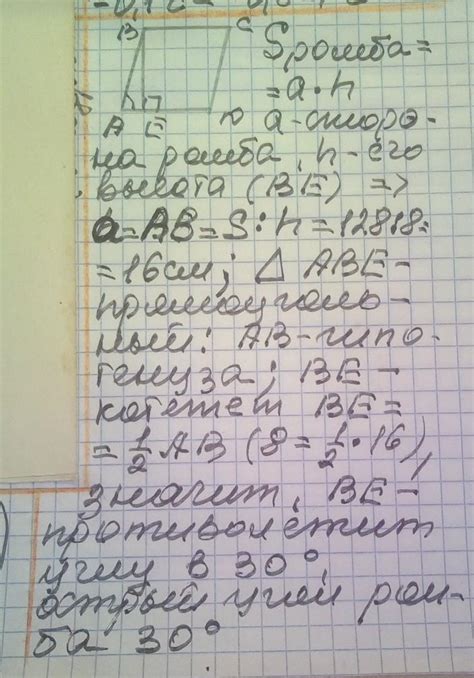 B C
Sромба=
=a·h
A E Ю a-сторо-
на ромба, h-его
высота (BE) =>
a=AB=S:h=128:8=
=16см; △ ABE-
прямоуголь-
ный: AB-гипо-
тенуза; BE-
катетет BE=
=1/2 AB (8=1/2·16),
значит, BE-
противолежит
углу в 30°,
острый угол ром-
ба 30°